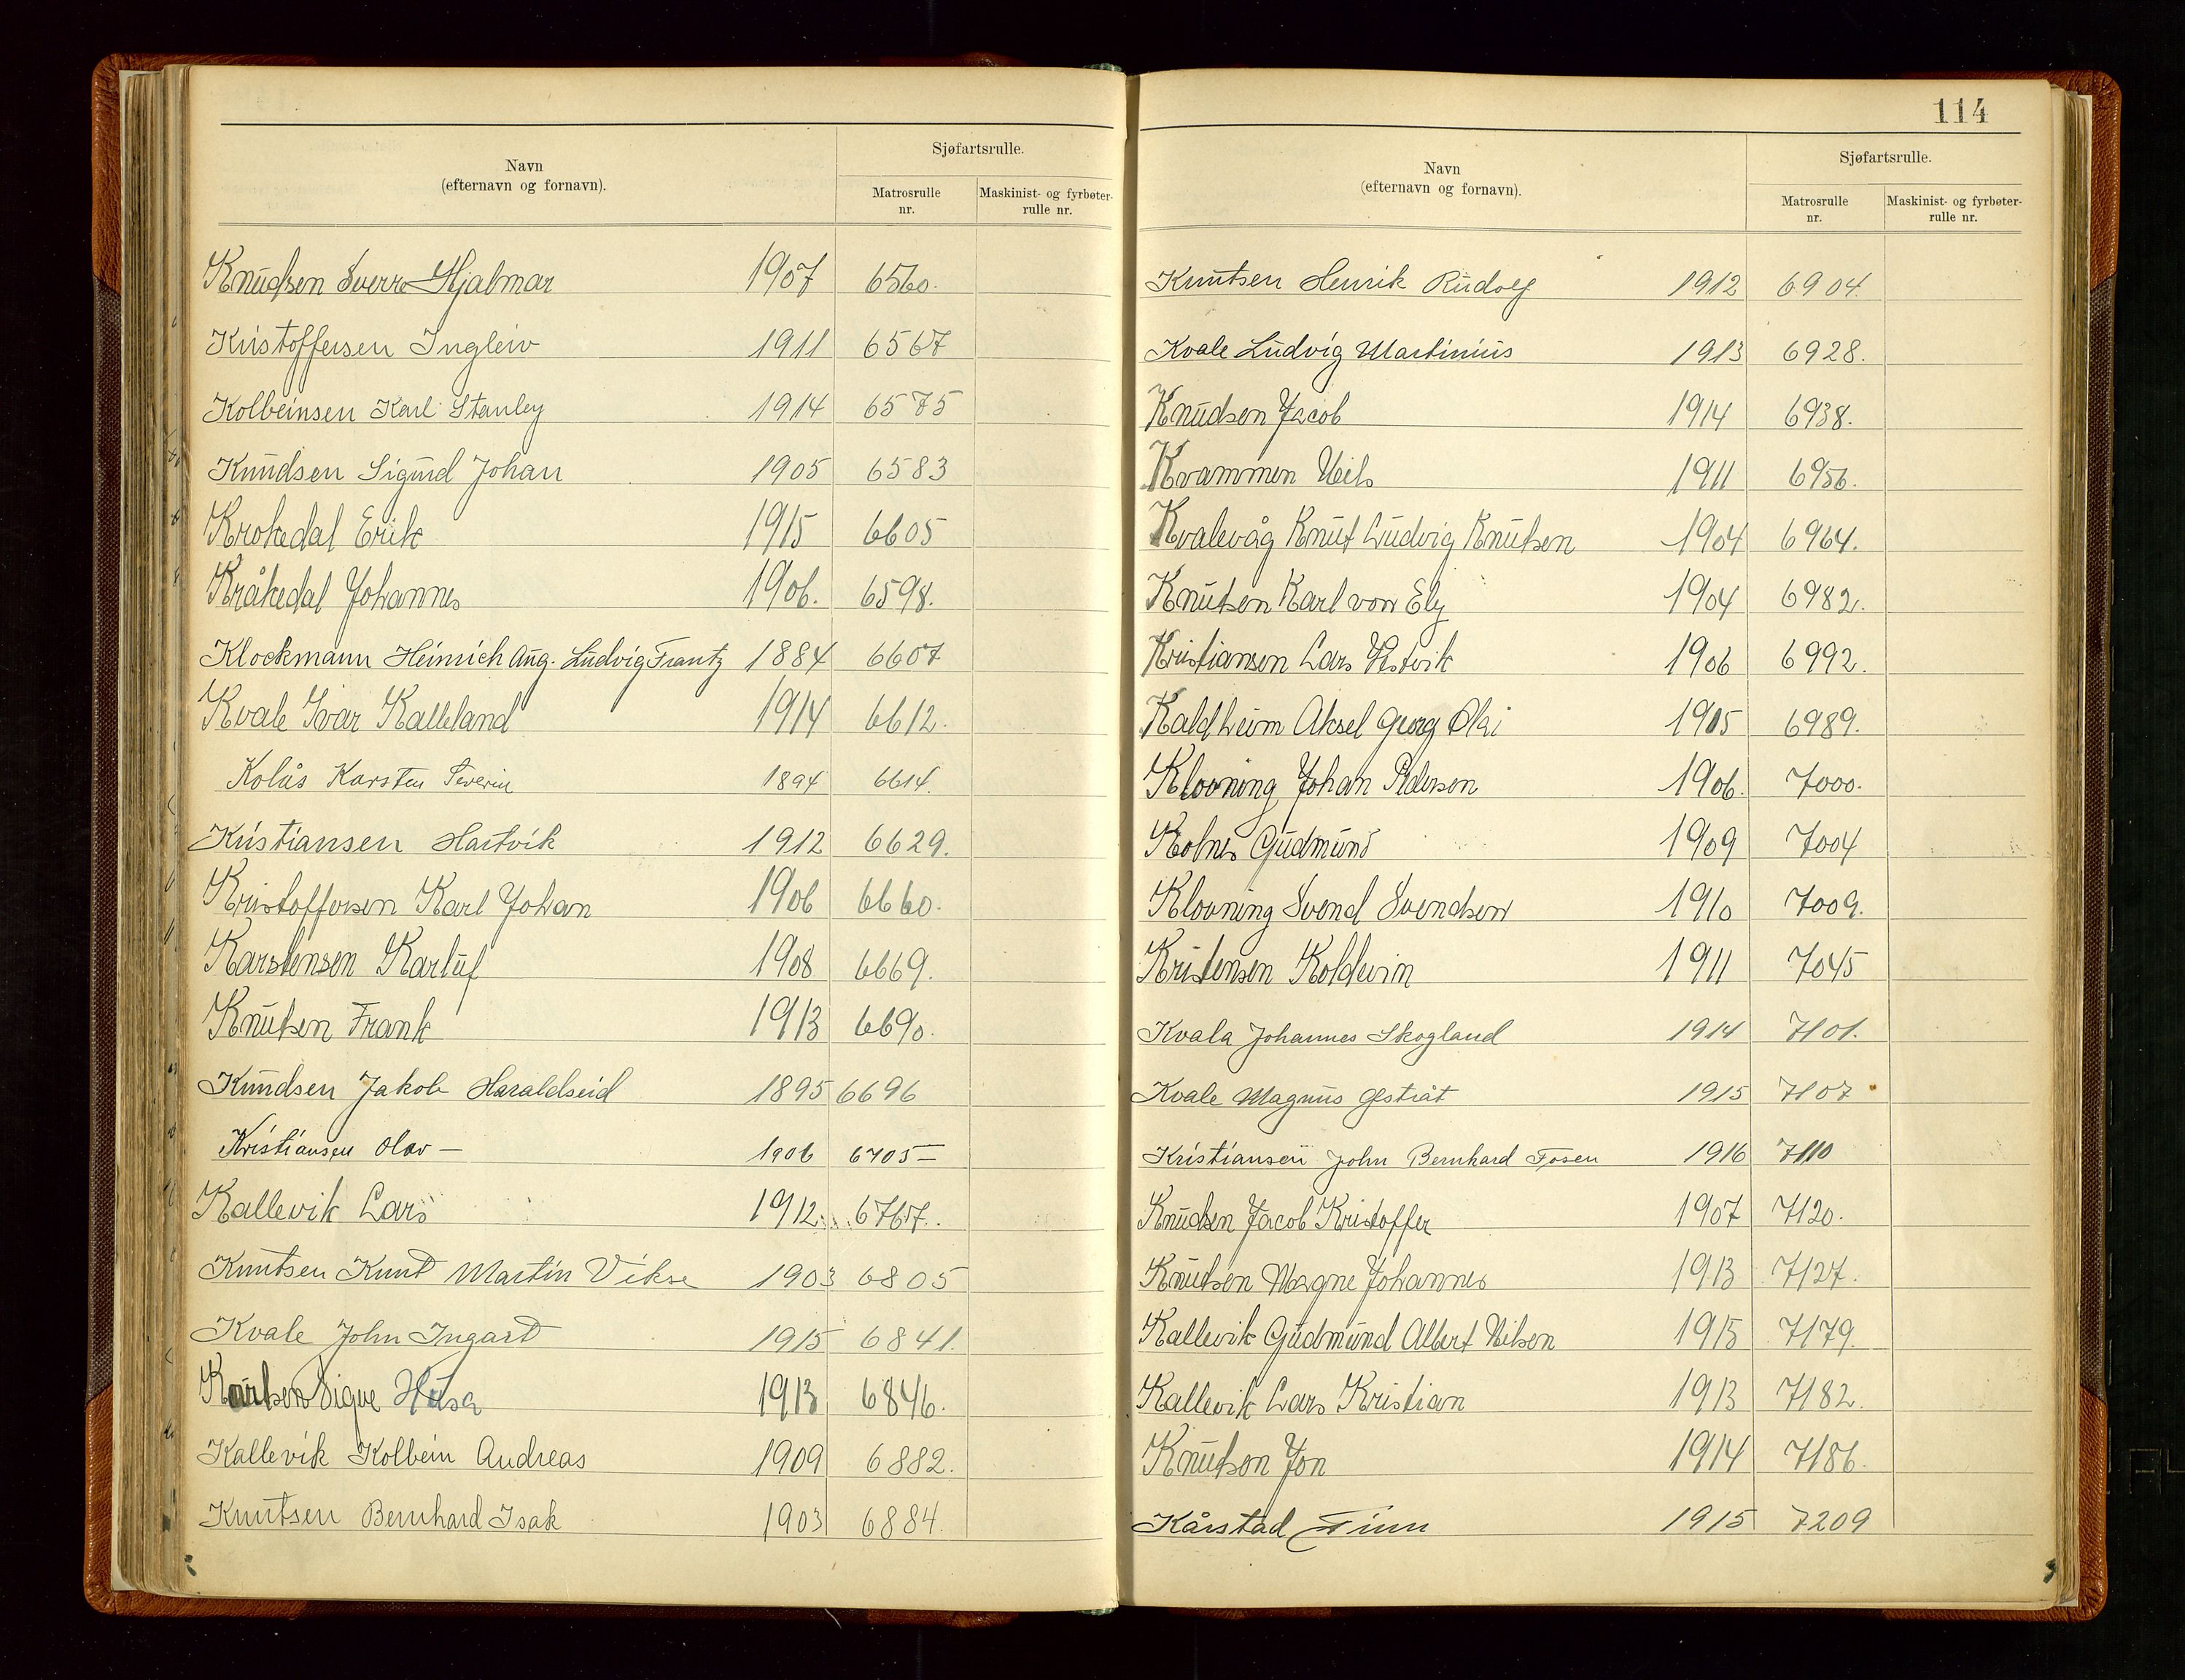 Navn
(efternavn og fornavn).
Sjøfartsrulle.
Matrosrulle nr.
Maskinist- og fyrbøter-rulle nr.
Knudsen Sverre Hjalmar 1907 6560.
Kristoffersen Ingleiv 1911 6567
Kolbeinsen Karl Stanley 1914 6575
Knudsen Sigurd Johan 1905 6583
Krokedal Erik 1915 6605
Kråkedal Johannes 1906. 6598.
Klockmann Heinrich Aug. Ludvig Frantz 1884 6607
Kvale Ivar Kalleland 1914 6612.
Kolås Karsten Severin 1894 6614.
Kristiansen Hartvik 1912 6629.
Kristoffersen Karl Johan 1906 6660.
Karstensen Karluf 1908 6669.
Knutsen Frank 1913 6690.
Knudsen Jakob Haraldseid 1895 6696
Kristiansen Olav — 1906 6705 —
Kallevik Lars 1912. 6767.
Knutsen Knut Martin Vikse 1903 6805
Kvale John Ingard 1915 6841.
Karlsen Sigve Husa 1913 6846.
Kallevik Kolbein Andreas 1909 6882.
Knutsen Bernhard Isak 1903 6884.
114
Navn
(efternavn og fornavn).
Sjøfartsrulle.
Matrosrulle nr.
Maskinist- og fyrbøter-rulle nr.
Knutsen Henrik Rudolf 1912 6904.
Kvale Ludvig Martinius 1913 6928.
Knudsen Jacob 1914 6938.
Kvammen Nils 1911 6956.
Kvalevåg Knut Ludvig Knutsen 1904 6964.
Knutsen Karl von Ely 1904 6982.
Kristiansen Lars 1906 6992.
Kaldheim Aksel Georg 1905 6989.
Klovning Johan Pedersen 1906. 7000.
Kolnes Gudmund 1909 7004
Klovning Svend Svendsen 1910 7009.
Kristensen Koldevin 1911 7045
Kvala Johannes Skogland 1914 7101.
Kvale Magnus 1915 7107
Kristiansen John Bernhard Fosen 1916 7110
Knudsen Jacob Kristoffer 1907 7120.
Knutsen Magne Johannes 1913 7127.
Kallevik Gudmund Albert Nilsen 1915 7179.
Kallevik Lars Kristian 1913 7182.
Knutson Jon 1914 7186.
Kårstad Finn 1915 7209